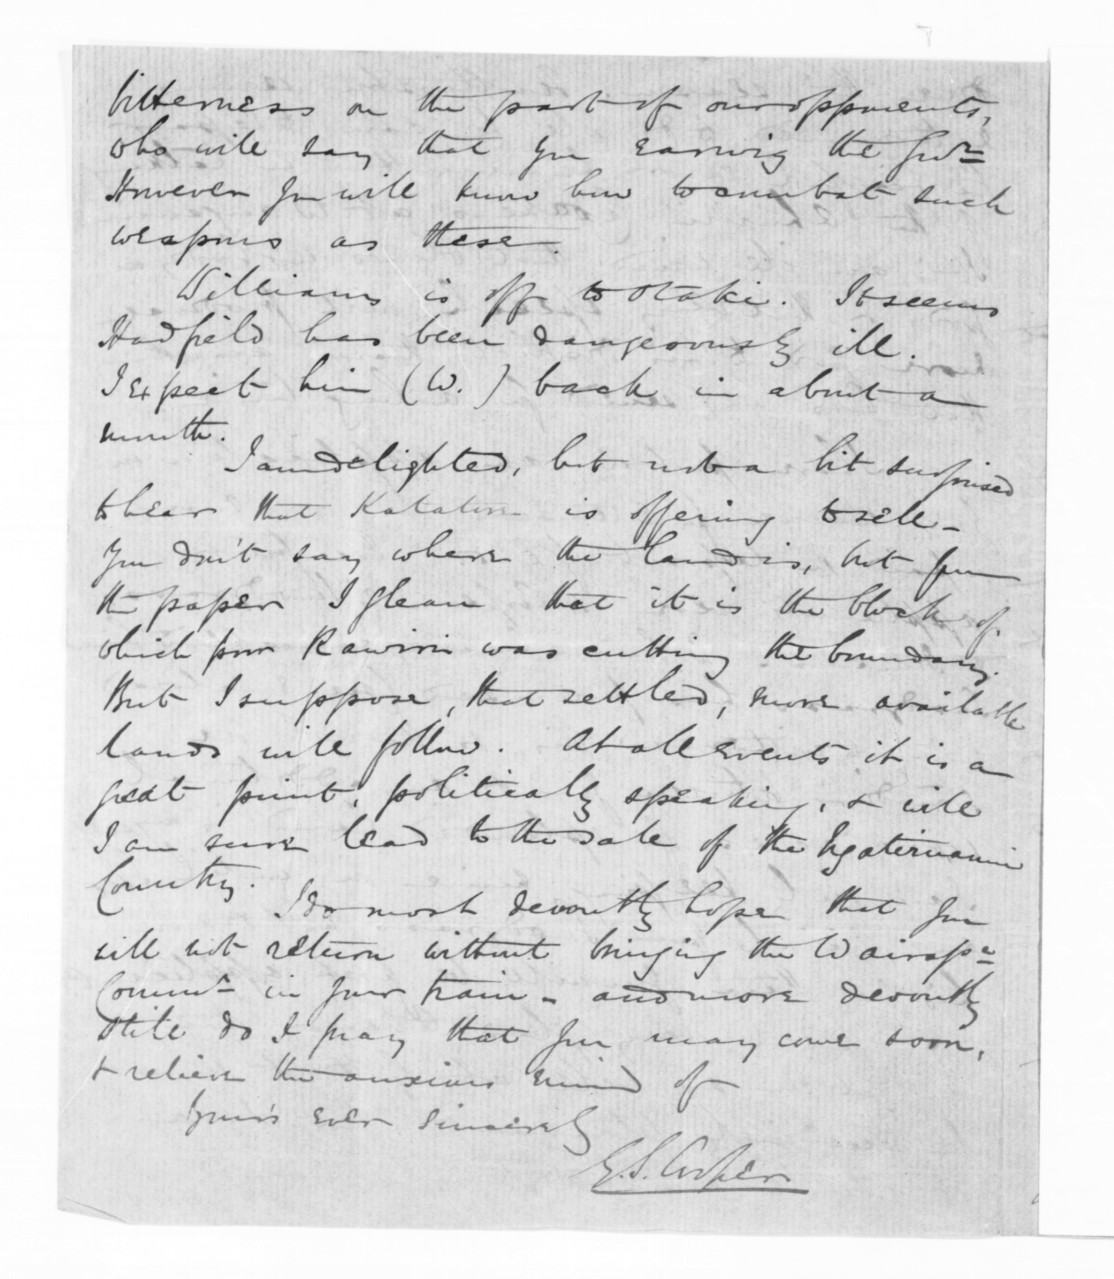 bitterness on the part of our opponents,
who will say that you earwig the Govr.
However you will know how to combat such
weapons as these.
Williams is off to Otaki. It seems
Hadfield has been dangerously ill.
I expect him (W.) back in about a
month.
I am delighted, but not a bit surprised
to hear that Katatore is offering to sell -
You don't say where the land is, but from
the paper I glean that it is the block of
which poor Rawiri was cutting the boundary.
But I suppose, that settled, more available
lands will follow. At all events it is a
great point, politically speaking, & will
I am sure lead to the sale of the Ngatiruanui
Country.
I do most devoutly hope that you
will not return without bringing the Wairapa
Commr. in your train - and more devoutly
still do I pray that you may come soon,
& relieve the anxious mind of
Your's ever sincerely
G. S. Cooper